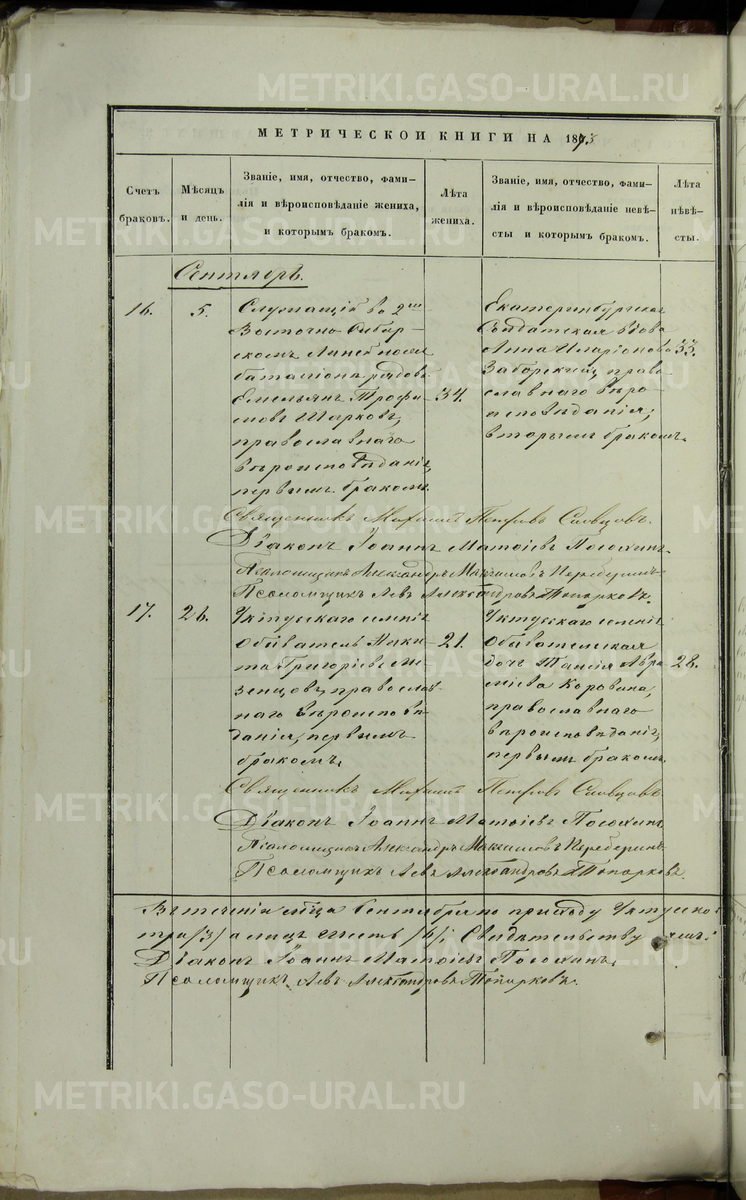 МЕТРИЧЕСКОЙ КНИГИ НА 1873
Счетъ браковъ.
Мѣсяцъ и день.
Званіе, имя, отчество, фами-
лія и вѣроисповѣданіе жениха,
и которымъ бракомъ.
Лѣта жениха.
Званіе, имя, отчество, фами-
лія и вѣроисповѣданіе невѣ-
сты и которымъ бракомъ.
Лѣта невѣ-
сты.
16.
5.
Служащій во 2мъ
Восточно-Сибир-
скомъ Линейномъ
баталіонѣ рядов.
Емельянъ Трофи-
мовъ Шарковъ,
православнаго
вѣроисповѣданія,
первымъ бракомъ.
34.
Екатеринбургская
Солдатская вдова
Анна Иларіонова
православнаго вѣро-
исповѣданія,
вторымъ бракомъ.
33.
Священникъ Петровъ Словцовъ.
Діаконъ Іоаннъ Матѳіевъ
Псаломщикъ Александръ Максимовъ
Псаломщикъ Левъ Александровъ Топорковъ.
17.
26.
Уктусскаго селенія
Обыватель Ники-
та Григоріевъ
православ-
наго вѣроисповѣ-
данія, первымъ
бракомъ.
21.
Уктусскаго селенія
Обывательская
дочь Таисія Авра-
міева Коровина,
православнаго
вѣроисповѣданія,
первымъ бракомъ.
28.
Священникъ Петровъ Словцовъ.
Діаконъ Іоаннъ Матѳіевъ
Псаломщикъ Александръ Максимовъ
Псаломщикъ Левъ Александровъ Топорковъ.
Въ теченіи м-ца Сентября по приходу
три /3/ а лицъ шесть /6/;
Діаконъ Іоаннъ Матѳіевъ
Псаломщикъ Левъ Александровъ Топорковъ.
METRIKI.GASO-URAL.RU